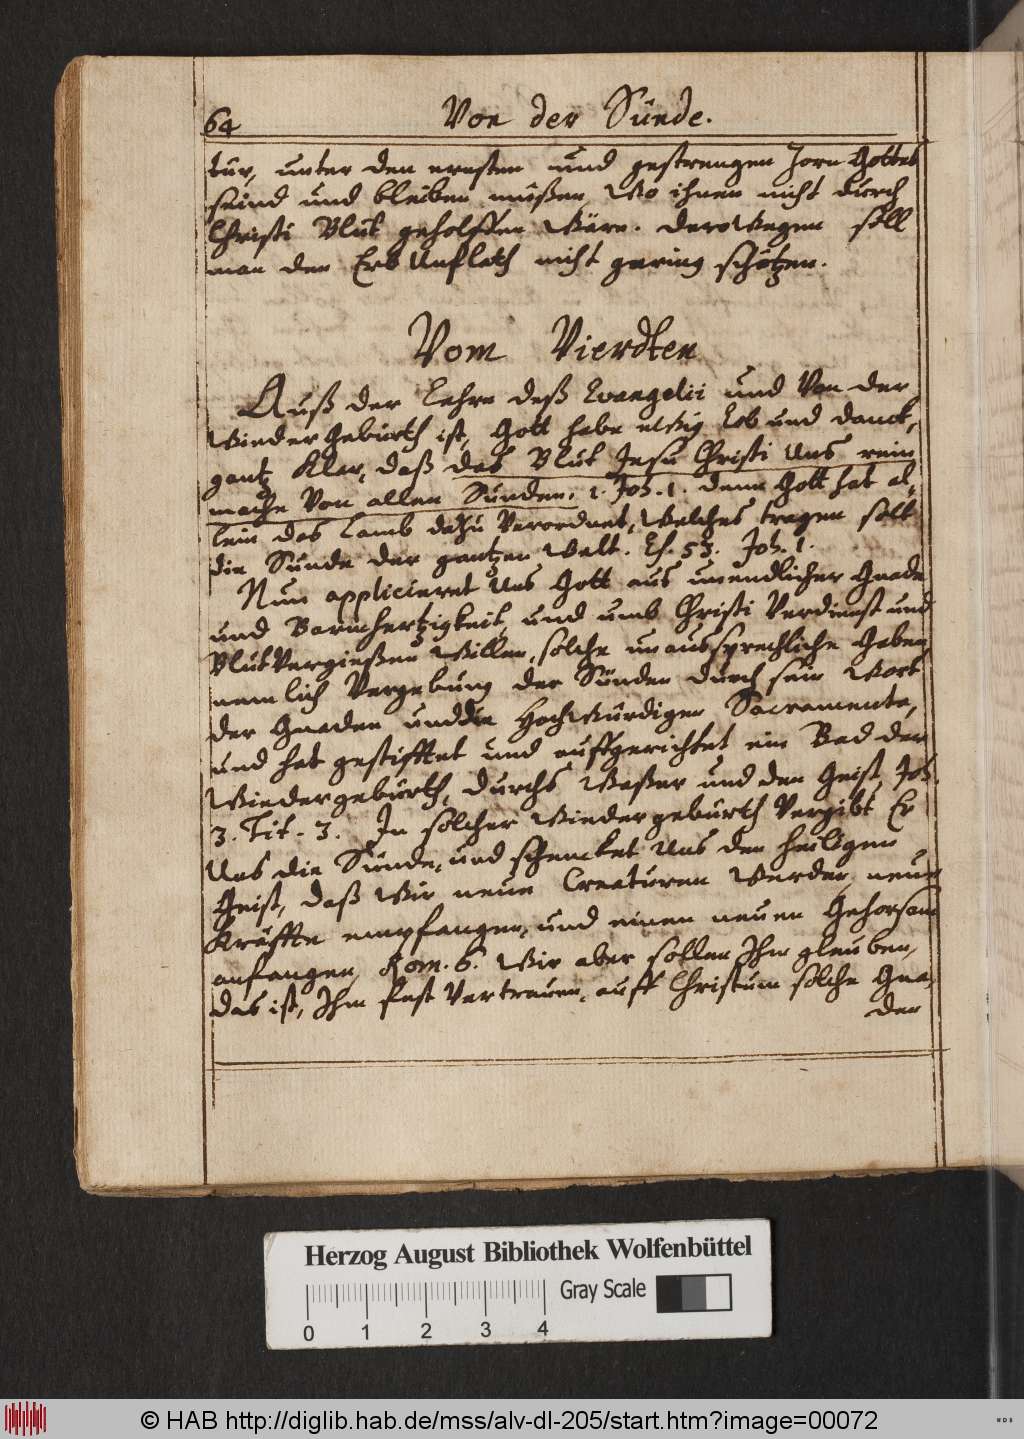 64
Von der Sünde.
tur, unter den ernsten und gestrengen Zorn Gottes
seind und bleiben müßen, Wo ihnen nicht durch
Christi Blut geholffen Wäre. DeroWegen soll
man den Erb Unflath nicht gering schätzen.
Vom Vierdten
Auß der Lehre deß Evangelii und Von der
WiederGeburth ist, Gott habe eWig Lob und danck,
gantz Klar, daß das Blut Jesu Christi Uns rein
mache Von allen Sünden. 1. Joh. 1. denn Gott hat al-
lein das Lamb dazu Verordnet, Welches tragen solt
die Sünde der gantzen Welt. Es. 53. Joh. 1.
Nun appliciret Uns Gott aus unendlicher Gnade
und Barmhertzigkeit, und umb Christi Verdienst und
BlutVergießen Willen, solche unaussprechliche Gaben,
nemlich Vergebung der Sünden durch sein Wort
der Gnaden und die HochWürdigen Sacramenta,
und hat gestifftet und auffgerichtet ein Bad der
Wiedergeburth, durchs Waßer und den Geist, Joh.
3. Tit. 3. In solcher Wiedergeburth Vergibt Er
Uns die Sünde, und schencket Uns den heiligen
Geist, daß Wir neue Creaturen Werden, neue
Kräffte empfangen, und einen neuen Gehorsam
anfangen, Rom. 6. Wir aber sollen Ihm gleuben,
das ist, Ihm fest Vertrauen, auff Christum solche Gna-
den
Herzog August Bibliothek Wolfenbüttel
Gray Scale
0 1 2 3 4
© HAB http://diglib.hab.de/mss/alv-dl-205/start.htm?image=00072
WDB